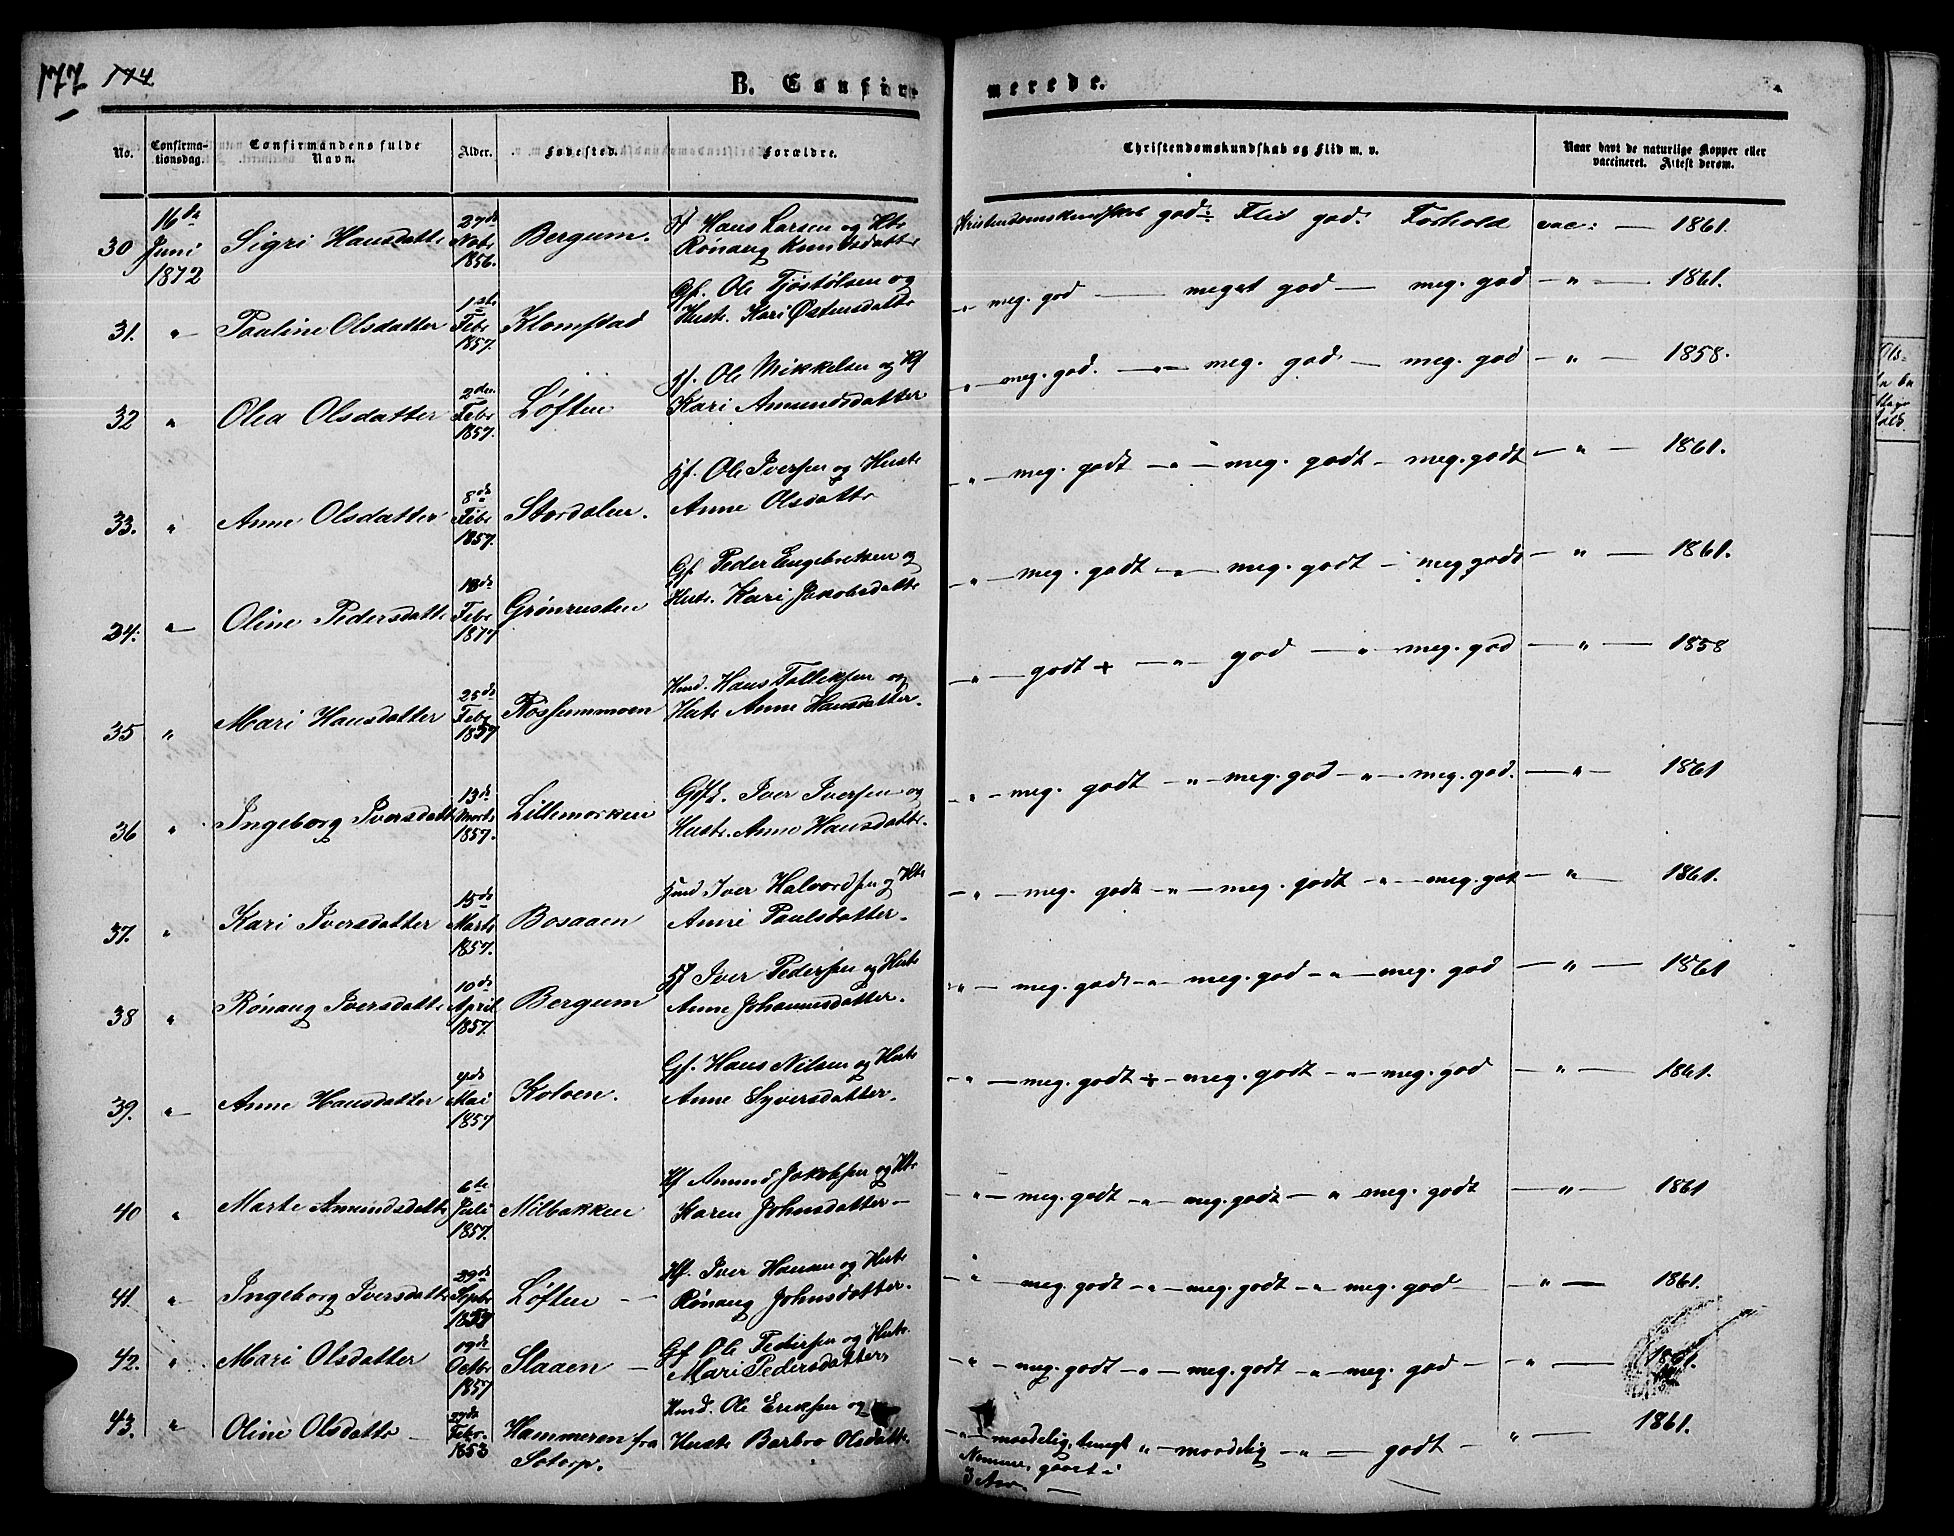 177 174
B. Confirmerede.
No. Confirmationsdag. Confirmandens fulde Navn. Alder. Fødested. Forældre. Christendomskundskab og Flid m. v. Naar havt de naturlige Kopper eller vaccineret. Attest derom.
30 16de Juni 1872 Sigri Hansdatte 27de Nobr 1856. Bergum. Hans Larsen og Rønaug Knudsdatte Kristendomskundskab god Flid god. Forhold vac: — 1861.
31. " Pauline Olsdatter 1ste Febr 1857. Klomstad Gf. Ole Tjøstølsen og Hustr. Kari Østensdatte " — meg. god — meget god — meg. god — " — 1861.
32 " Olea Olsdatter 2den Febr 1857. Løften Ole Mikkelsen og Kari Amundsdatter " — meg. god. — " — meg. god. — meg. god — " — 1858.
33. " Anne Olsdatter 8de Febr 1857. Stordalen. Ole Iversen og Hustr Anne Olsdatte — " — meg. godt — " — meg. godt — meg. godt — " — 1861.
34. " Oline Pedersdatte 18de Febr 1877 Grønrusten Gf. Peder Engebretsen og Hustr. Kari Jakobsdatte — " — meg. godt — " — meg. godt — meg godt — " — 1861.
35 " Mari Hansdatter 25de Febr 1857 Rossummoen Hmd. Hans Tollefsen og Hustr Anne Hansdatter. — " — godt + — " — god — " — meg. god — " — 1858
36 " Ingeborg Iversdatte 13de Marts 1857. Lillemorken Iver Iversen og Hustr. Anne Hansdatte. — " — meg. godt — " — meg. god — " — meg. god. — " — 1861
37. " Kari Iversdatter 15de Marts 1857. Bosaaen Hmd Iver Halvordsen og Anne Paulsdatter. — " — meg. godt — " — meg. godt — " — meg. got — " — 1861.
38 " Rønaug Iversdatte 10de April 1857. Bergum Iver Pedersen og Hustr Anne Johannesdatter. " — meg. god — " — meg. god — " — meg. god — " — 1861
39. " Anne Hansdatter 4de Mai 1857 Kolven. Gf. Hans Nilsen og Hustr Anne Syversdatter. — " — meg. godt + — meg. godt — " — meg. god — " — 1861.
40 " Marte Amundsdatte 6te Juli 1857. Milbakken Amund Jakobsen og Karen Johnsdatter — — " — meg. godt — " — meg. godt — " — meg. godt — " — 1861
41. " Ingeborg Iversdatte 29de Septbr Løften — Iver Hansen og Hustr Rønaug Johnsdatter. — " — meg. godt — " — meg. godt — " — meg. god — " — 1861.
42. " Mari Olsdatter Octbr 1857 Slaaen — Gf Ole Pedersen og Hustr. Mari Pedersdatter — " — meg. godt — " — meg. godt — " — meg. god — " — 1861.
43. " Oline Olsdatte — 27de Febr. 1853 Hammeren fra Sotorp. Hmd. Ole Eriksen og Hustr Barbro Olsdatte — " — maadelig, — " — maadelig — " — godt — " — 1861.
3 Aar —